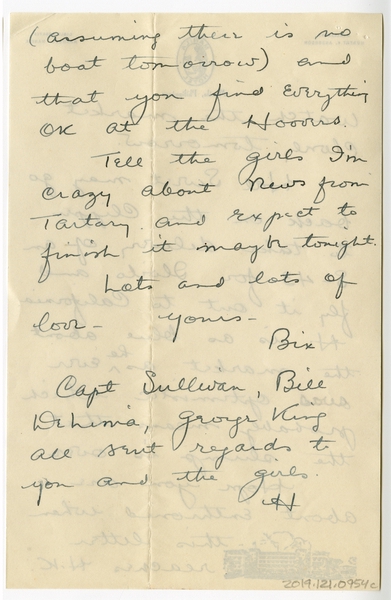 (assuming there is no
boat tomorrow) and
that you find everything
OK at the Hoovers.
Tell the girls I'm
crazy about News from
Tartary and expect to
finish it maybe tonight.
Lots and lots of
love - yours -
Bix
Capt Sullivan, Bill
DeLima, George King
all sent regards to
you and the girls.
H
2019.121.0954c